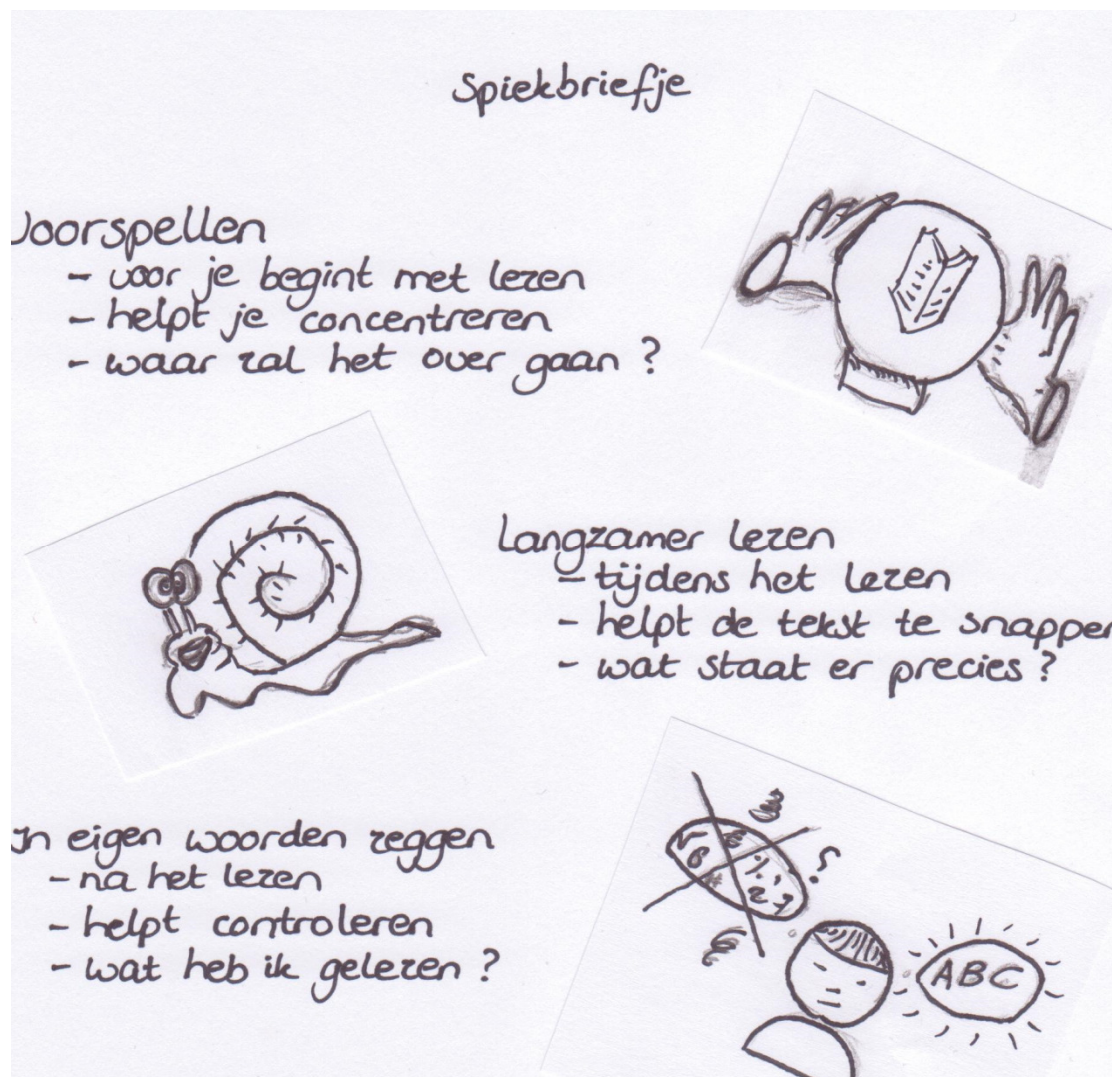 Spiekbriefje
Voorspellen
- voor je begint met lezen
- helpt je concentreren
- waar zal het over gaan ?
Langzamer lezen
- tijdens het lezen
- helpt de tekst te snappen
- wat staat er precies ?
In eigen woorden zeggen
- na het lezen
- helpt controleren
- wat heb ik gelezen ?
ABC